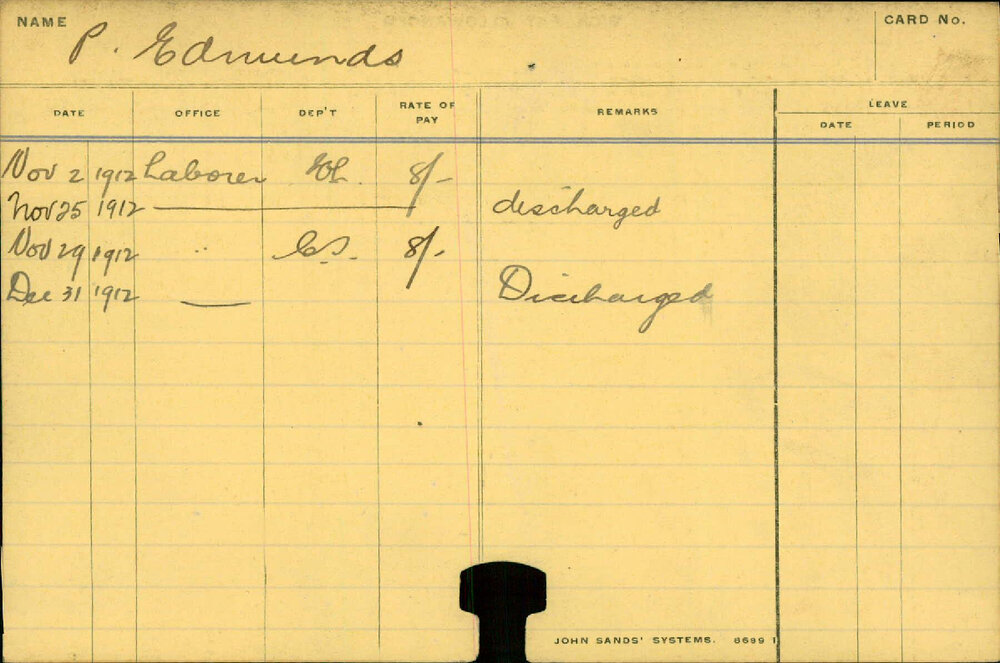 NAME P. Edmunds CARD No.
DATE OFFICE DEP'T RATE OF PAY REMARKS LEAVE
DATE PERIOD
Nov 2 1912 Laborer 8/-
Nov 25 1912 — discharged
Nov 29 1912 " C.S. 8/-
Dec 31 1912 — Discharged
JOHN SANDS' SYSTEMS. 8699 1